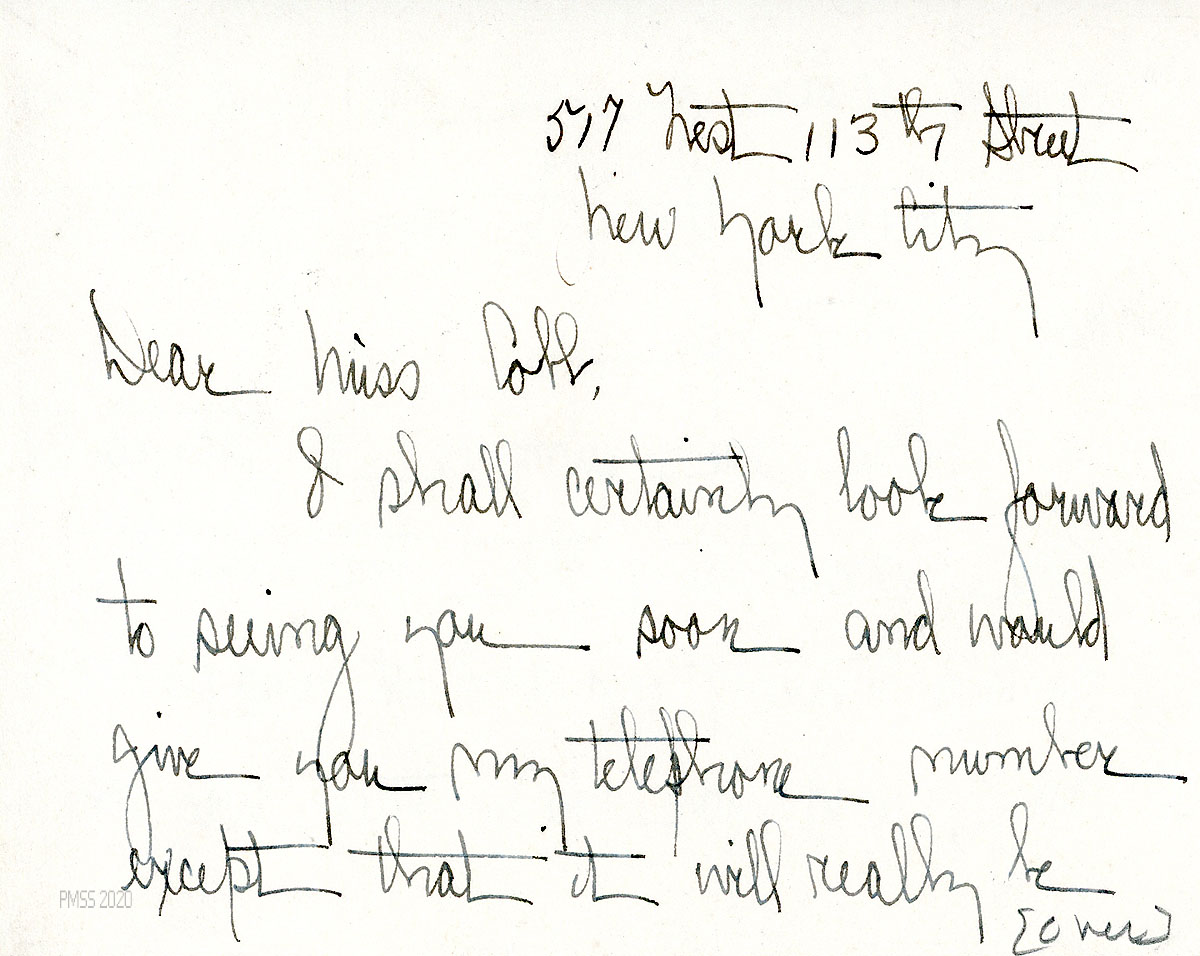 517 West 113th Street
New York City
Dear Miss Cobb,
I shall certainly look forward
to seeing you soon and would
give you my telephone number
except that it will really be
[over]
PMSS 2020